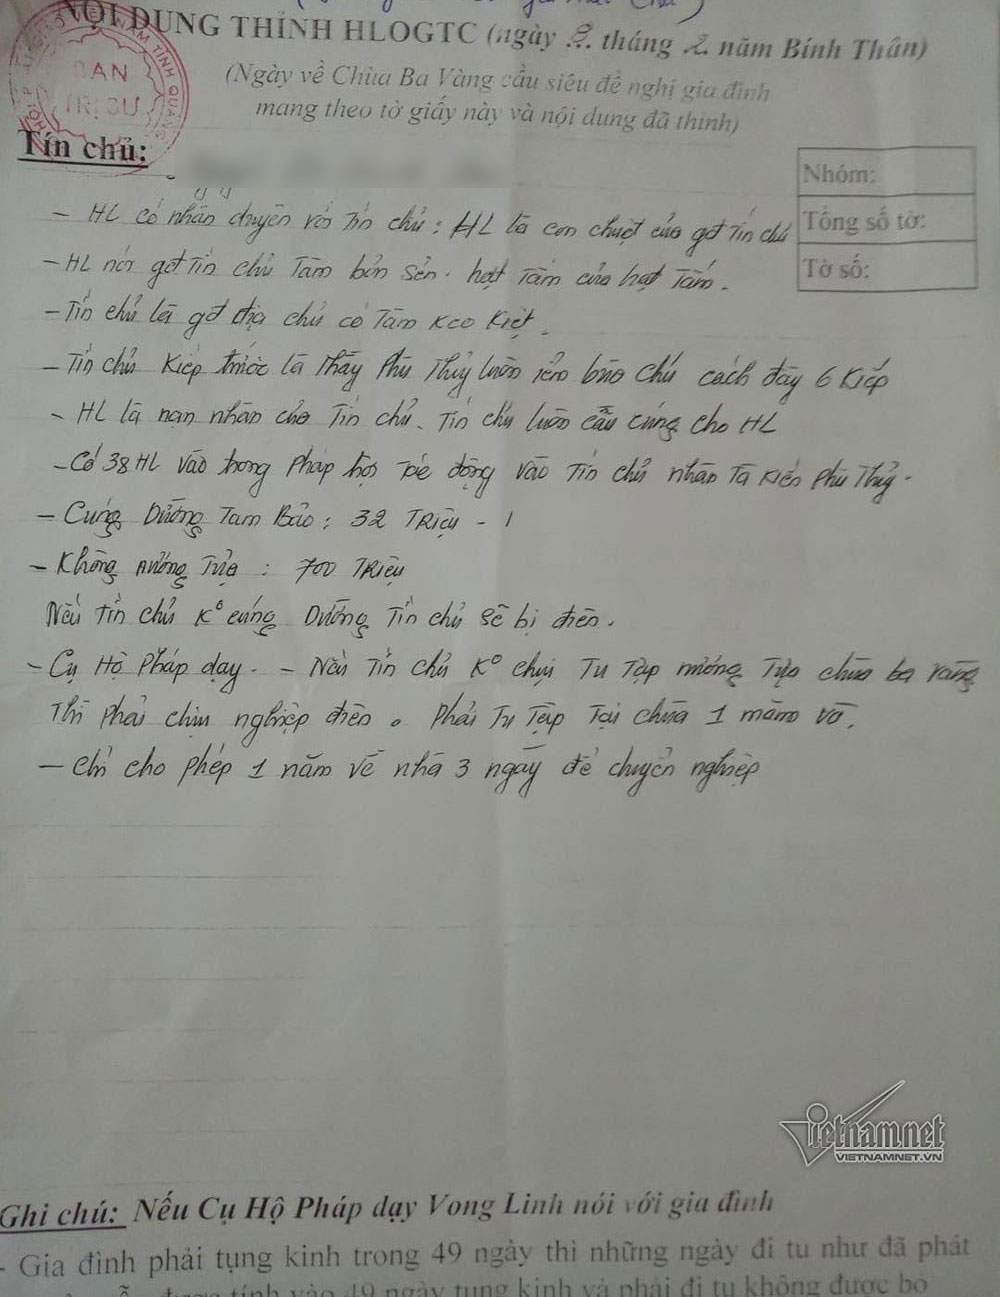 NỘI DUNG THỈNH HLOGTC (ngày 2 tháng 2 năm Bính Thân)
(Ngày về Chùa Ba Vàng cầu siêu đề nghị gia đình
mang theo tờ giấy này và nội dung đã thỉnh)
BAN
TRỊ SỰ
Tín chủ:
Nhóm:
Tổng số tờ:
Tờ số:
- HL có nhân duyên với Tín chủ: HL là con chuột của gđ Tín chủ
- HL nói gđ Tín chủ Tâm bỏn sẻn. hạt Tấm cắn hạt Tấm.
- Tín chủ là gđ địa chủ có Tâm keo kiệt.
- Tín chủ kiếp trước là Thầy Phù Thủy luôn yểm bùa chú cách đây 6 kiếp
- HL là nạn nhân của Tín chủ. Tín chủ luôn cầu cúng cho HL
- Có 38 HL vào trong Pháp hội tác động vào Tín chủ nhân Tà kiến Phù Thủy.
- Cúng Dường Tam Bảo: 32 Triệu - 1
- Không nương Tựa: 700 Triệu
Nếu Tín chủ K° cúng Dường Tín chủ sẽ bị điên.
- Cụ Hộ Pháp dạy. - Nếu Tín chủ K° chịu Tu Tập nương Tựa chùa ba vàng
Thì phải chịu nghiệp điên. Phải Tu Tập Tại chùa 1 năm
- Chỉ cho phép 1 năm về nhà 3 ngày để chuyển nghiệp
Vietnamnet
VIETNAMNET.VN
Ghi chú: Nếu Cụ Hộ Pháp dạy Vong Linh nói với gia đình
- Gia đình phải tụng kinh trong 49 ngày thì những ngày đi tu như đã phát
được tính vào 49 ngày tụng kinh và phải đi tu không được bỏ